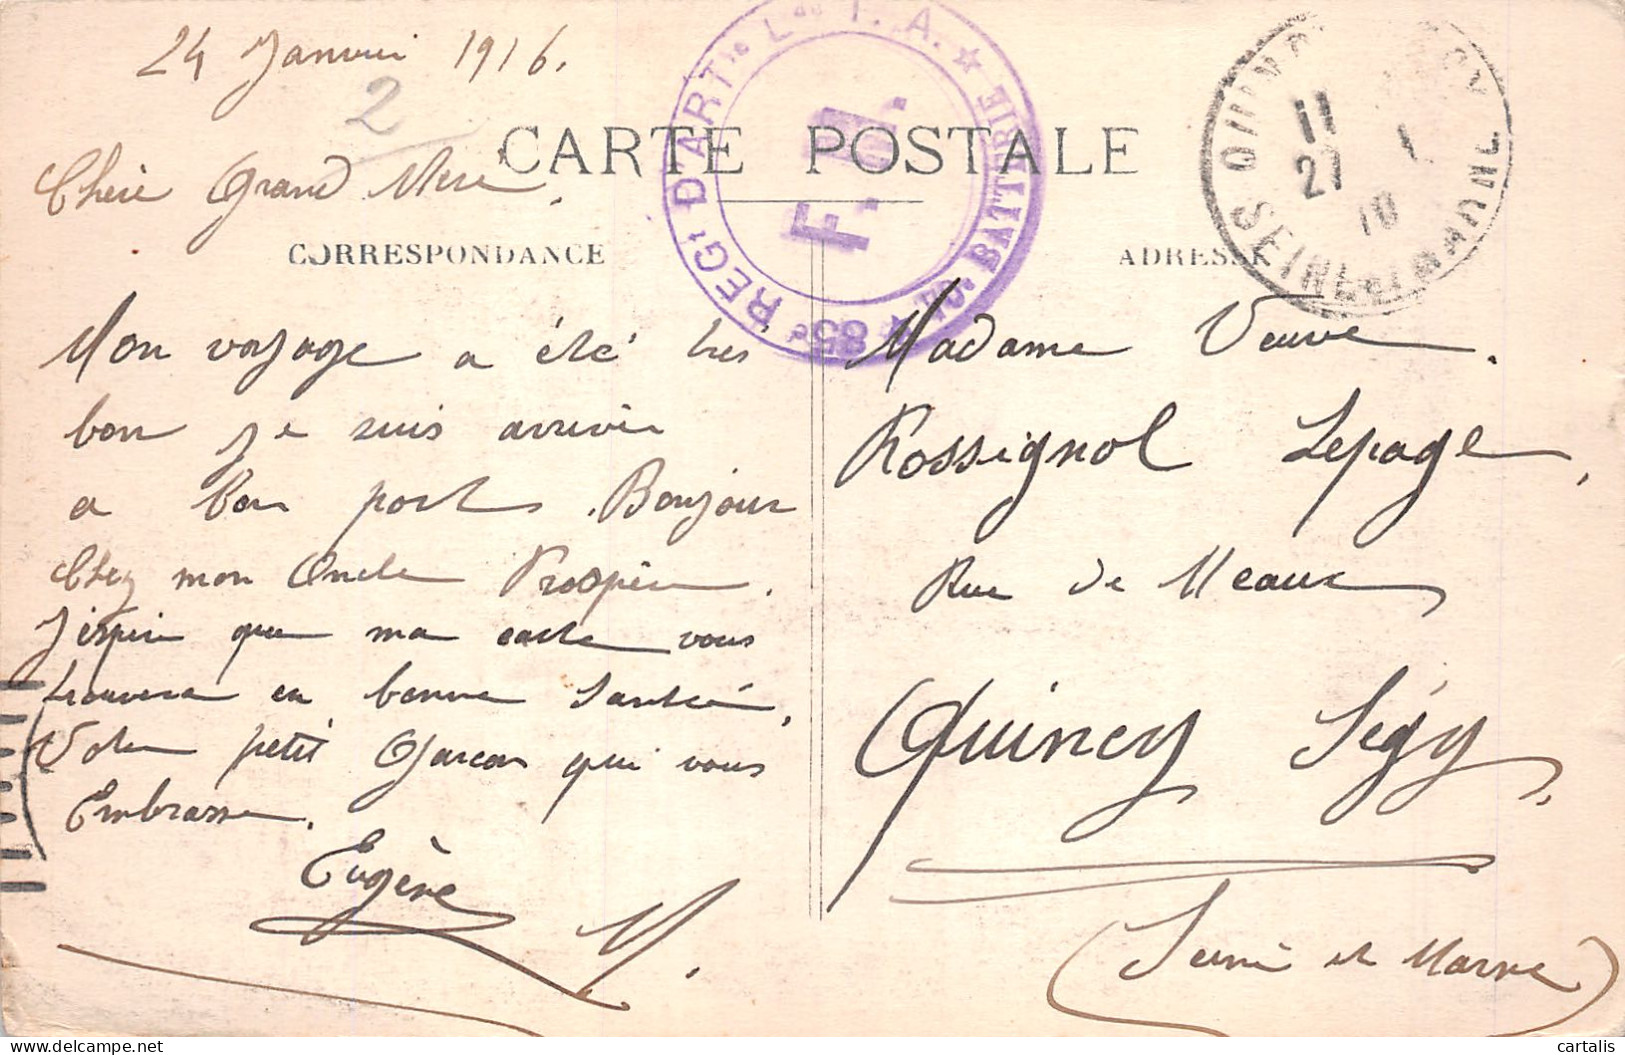 24 Janvier 1916.
2
CARTE POSTALE
85e REGt D'ARTie Lde T. A. ★ BATTERIE ★
F. M.
QUINCY SEGY
11
27 1
SEINE-ET-MARNE
Chère Grand Mère.
CORRESPONDANCE
ADRESSE
Mon voyage a été très
bon je suis arriver
a bon port. Bonjour
Chez mon Oncle Prospère.
J'espère que ma carte vous
trouvera en bonne santée,
Votre petit Garçon qui vous
Embrasse.
Eugène
M.
Madame Veuve.
Rossignol Lepage,
Rue de Meaux
Quincy Ségy.
(Seine et Marne)
cartalis